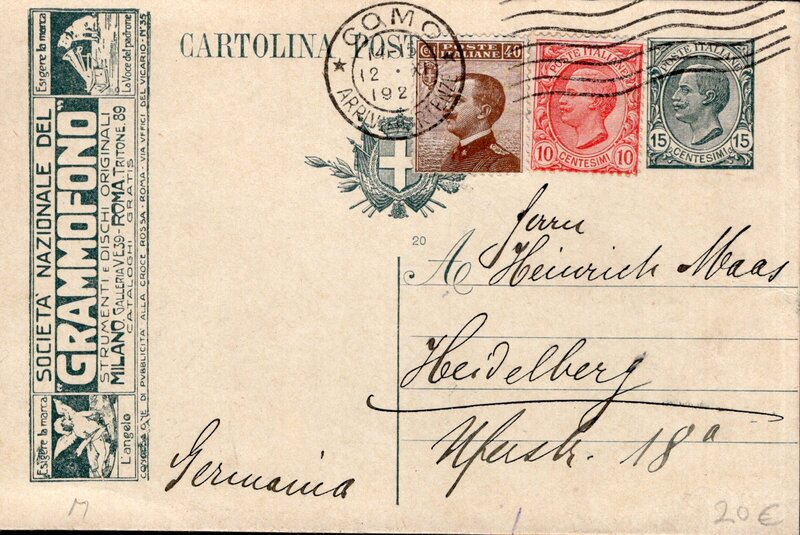 CARTOLINA POST
COMO
12 · XII
192
ARRIVI PARTENZE
POSTE ITALIANE 40
POSTE ITALIANE
10 CENTESIMI 10
POSTE ITALIANE
15 CENTESIMI 15
20
A Herrn
Heinrich Maas
Heidelberg
Uferstr. 18a
Germania
Esigere la marca
La Voce del padrone
SOCIETÀ NAZIONALE DEL
"GRAMMOFONO"
STRUMENTI E DISCHI ORIGINALI
MILANO. GALLERIA V.E. 39 - ROMA. TRITONE. 89
CATALOGHI GRATIS
CONCESSIONE DI PUBBLICITÀ ALLA CROCE ROSSA - ROMA - VIA UFFICI DEL VICARIO - N° 35
Esigere la marca
L'angelo
M
20 €